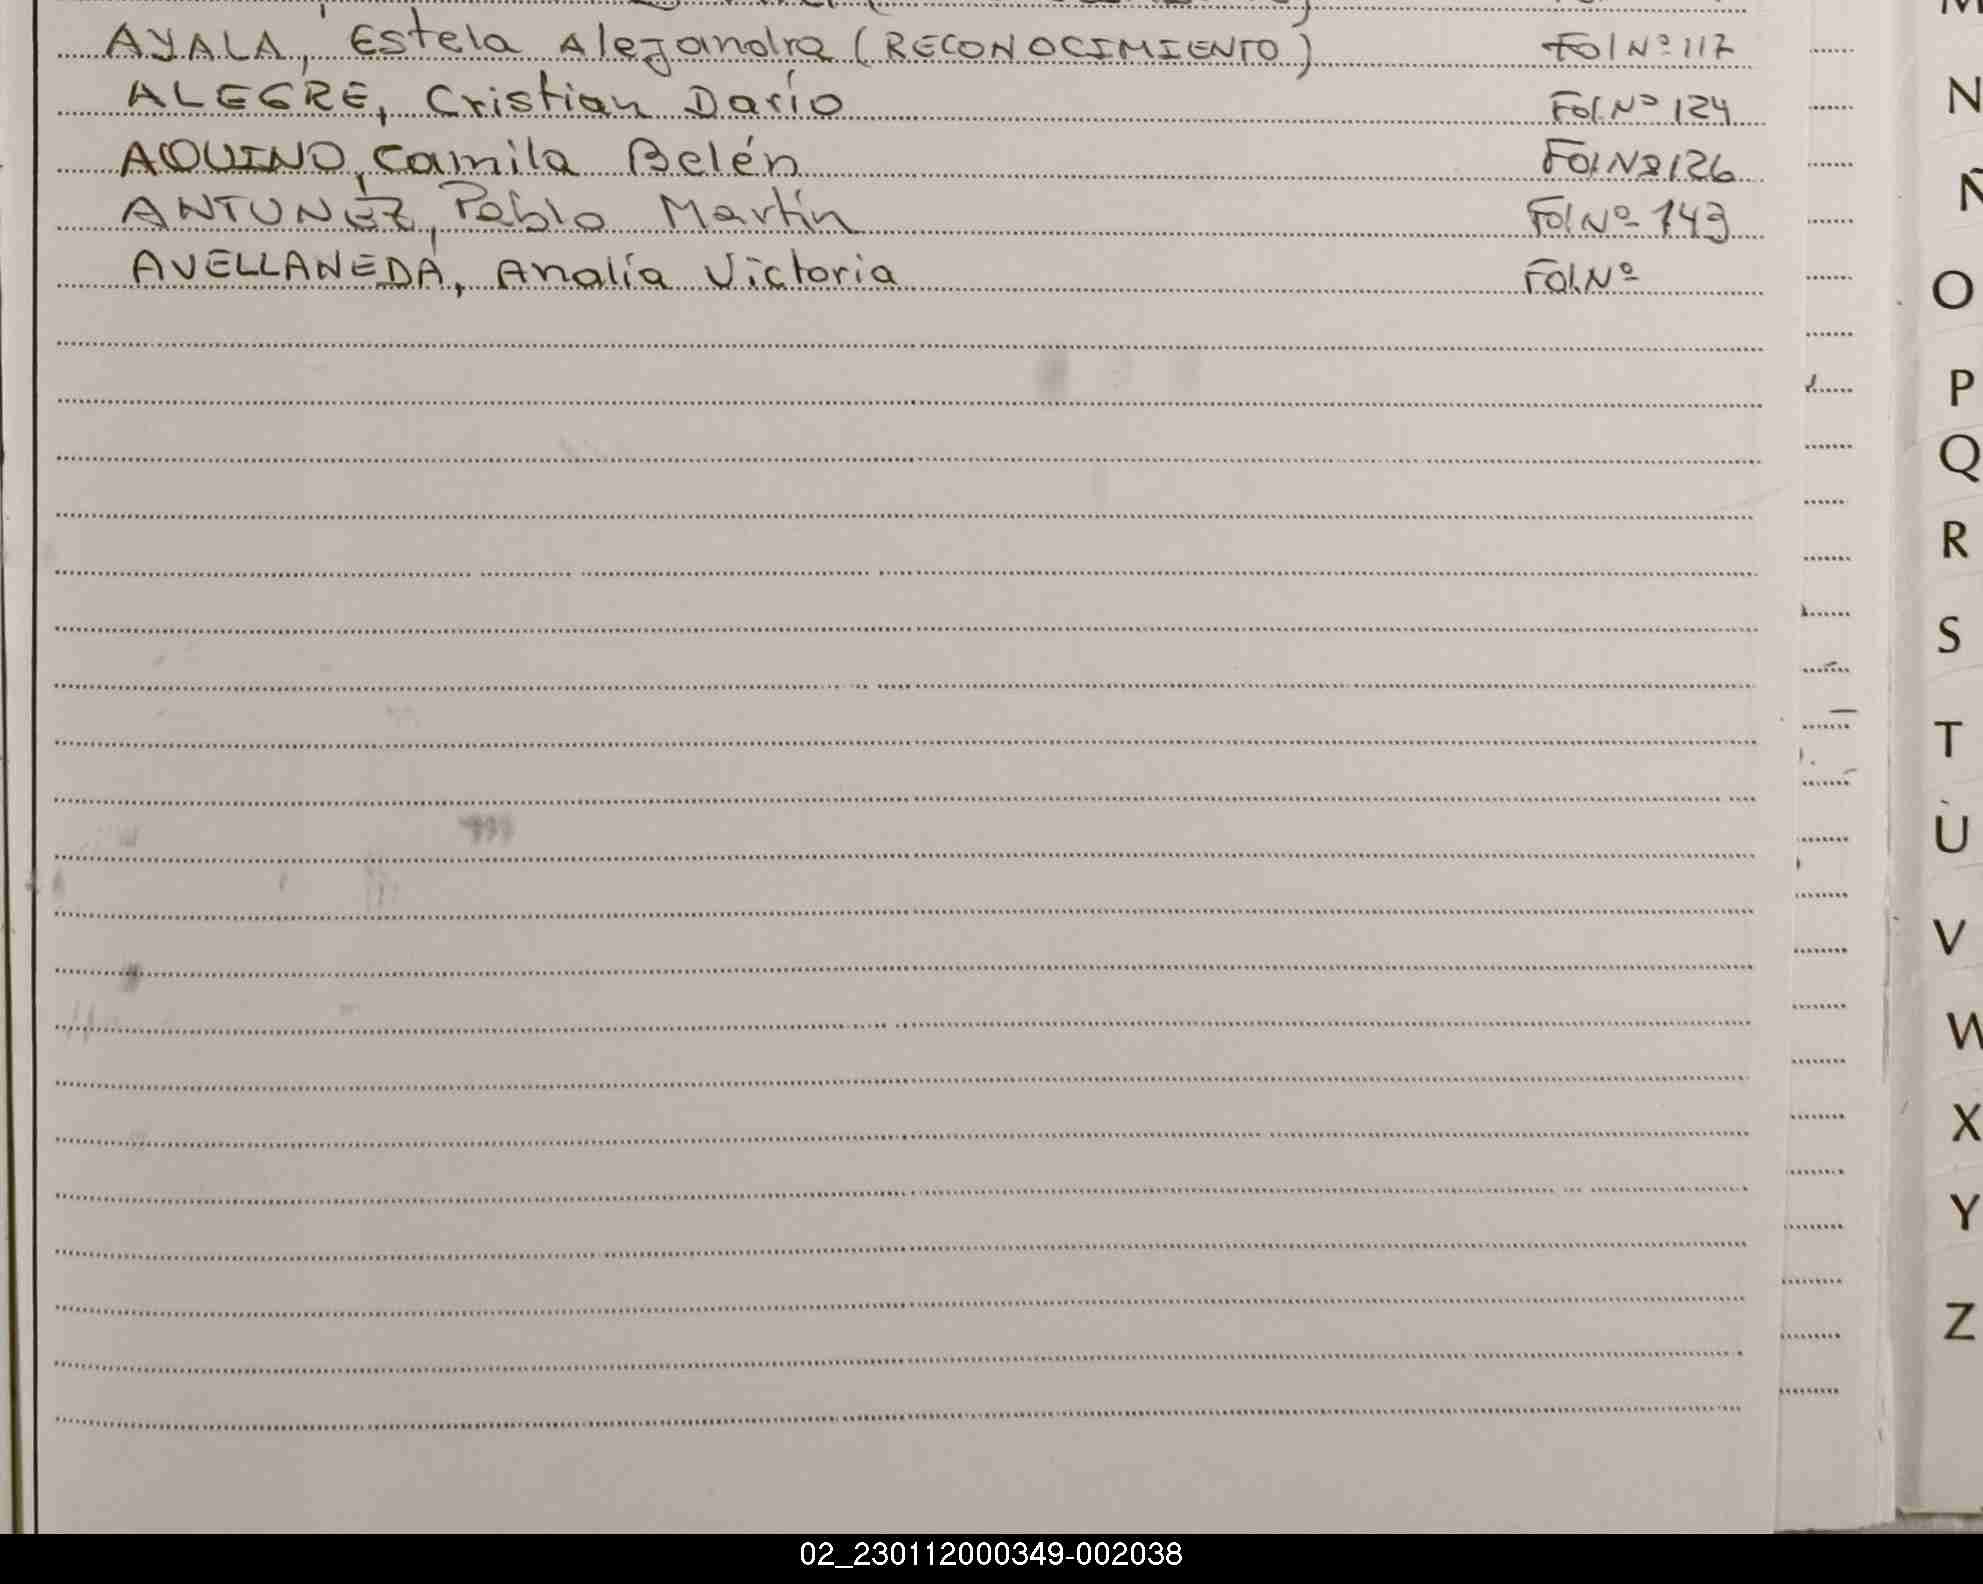 AYALA, Estela Alejandra (RECONOCIMIENTO) Fol Nº 117
ALEGRE, Cristian Darío Fol. Nº 124
AQUINO, Camila Belén Fol Nº 126
ANTUNEZ, Pablo Martín Fol Nº 143
AVELLANEDA, Analía Victoria Fol. Nº
N
Ñ
O
P
Q
R
S
T
U
V
W
X
Y
Z
02_230112000349-002038